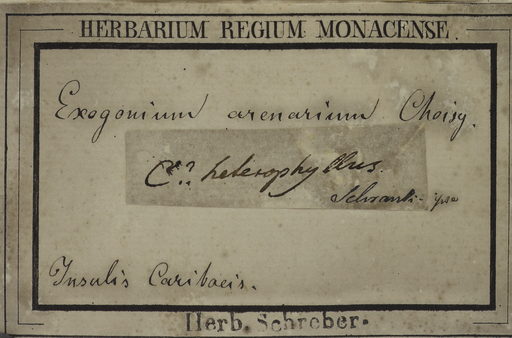 HERBARIUM REGIUM MONACENSE.
Exogonium arenarium Choisy.
C.? heterophyllus.
Schrank ipse
Insulis Caribaeis.
Herb. Schreber.